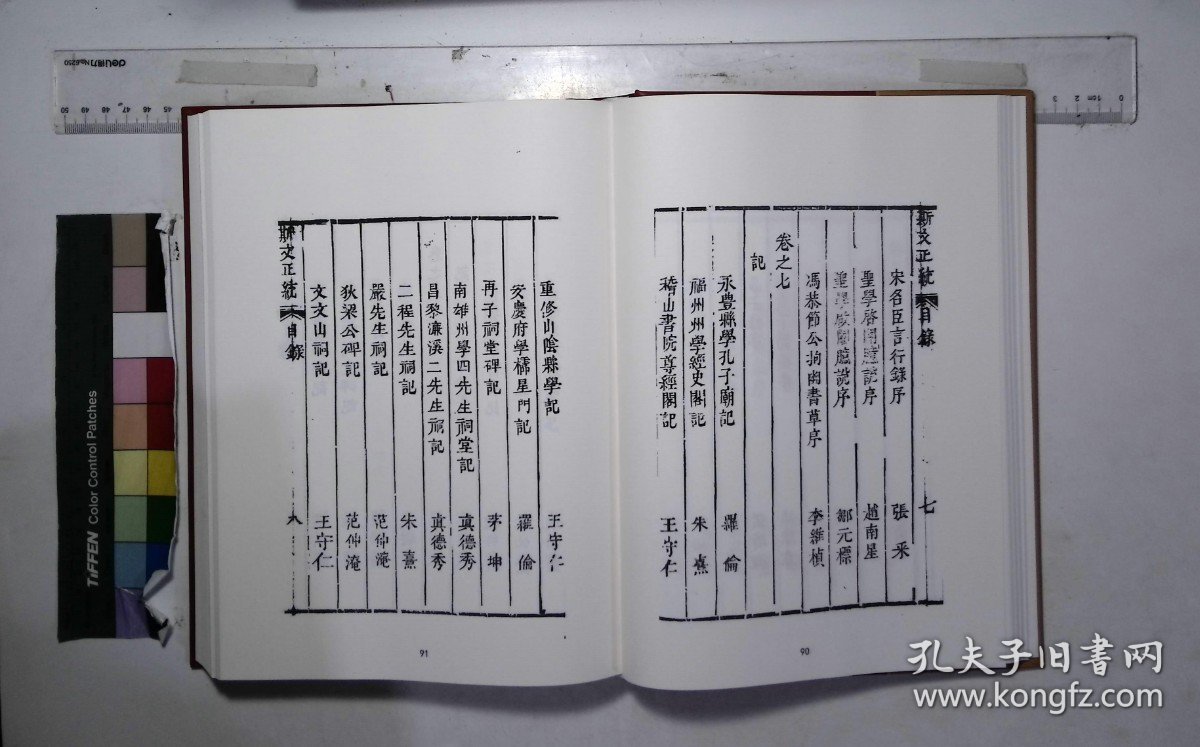 斯文正統 目錄 七
宋名臣言行錄序 張采
聖學啓關臆說序 趙南星
聖學啟關臆說序 鄒元標
馮恭節公拘幽書草序 李維楨
卷之七
記
永豊縣學孔子廟記 羅倫
福州州學經史閣記 朱熹
稽山書院尊經閣記 王守仁
90
重修山陰縣學記 王守仁
安慶府學櫺星門記 羅倫
冉子祠堂碑記 茅坤
南雄州學四先生祠堂記 真德秀
昌黎濂溪二先生祠記 真德秀
二程先生祠記 朱熹
嚴先生祠記 范仲淹
狄梁公碑記 范仲淹
文文山祠記 王守仁
斯文正統 目錄 八
91
deli得力 No.6250
TIFFEN Color Control Patches
孔夫子旧书网
www.kongfz.com